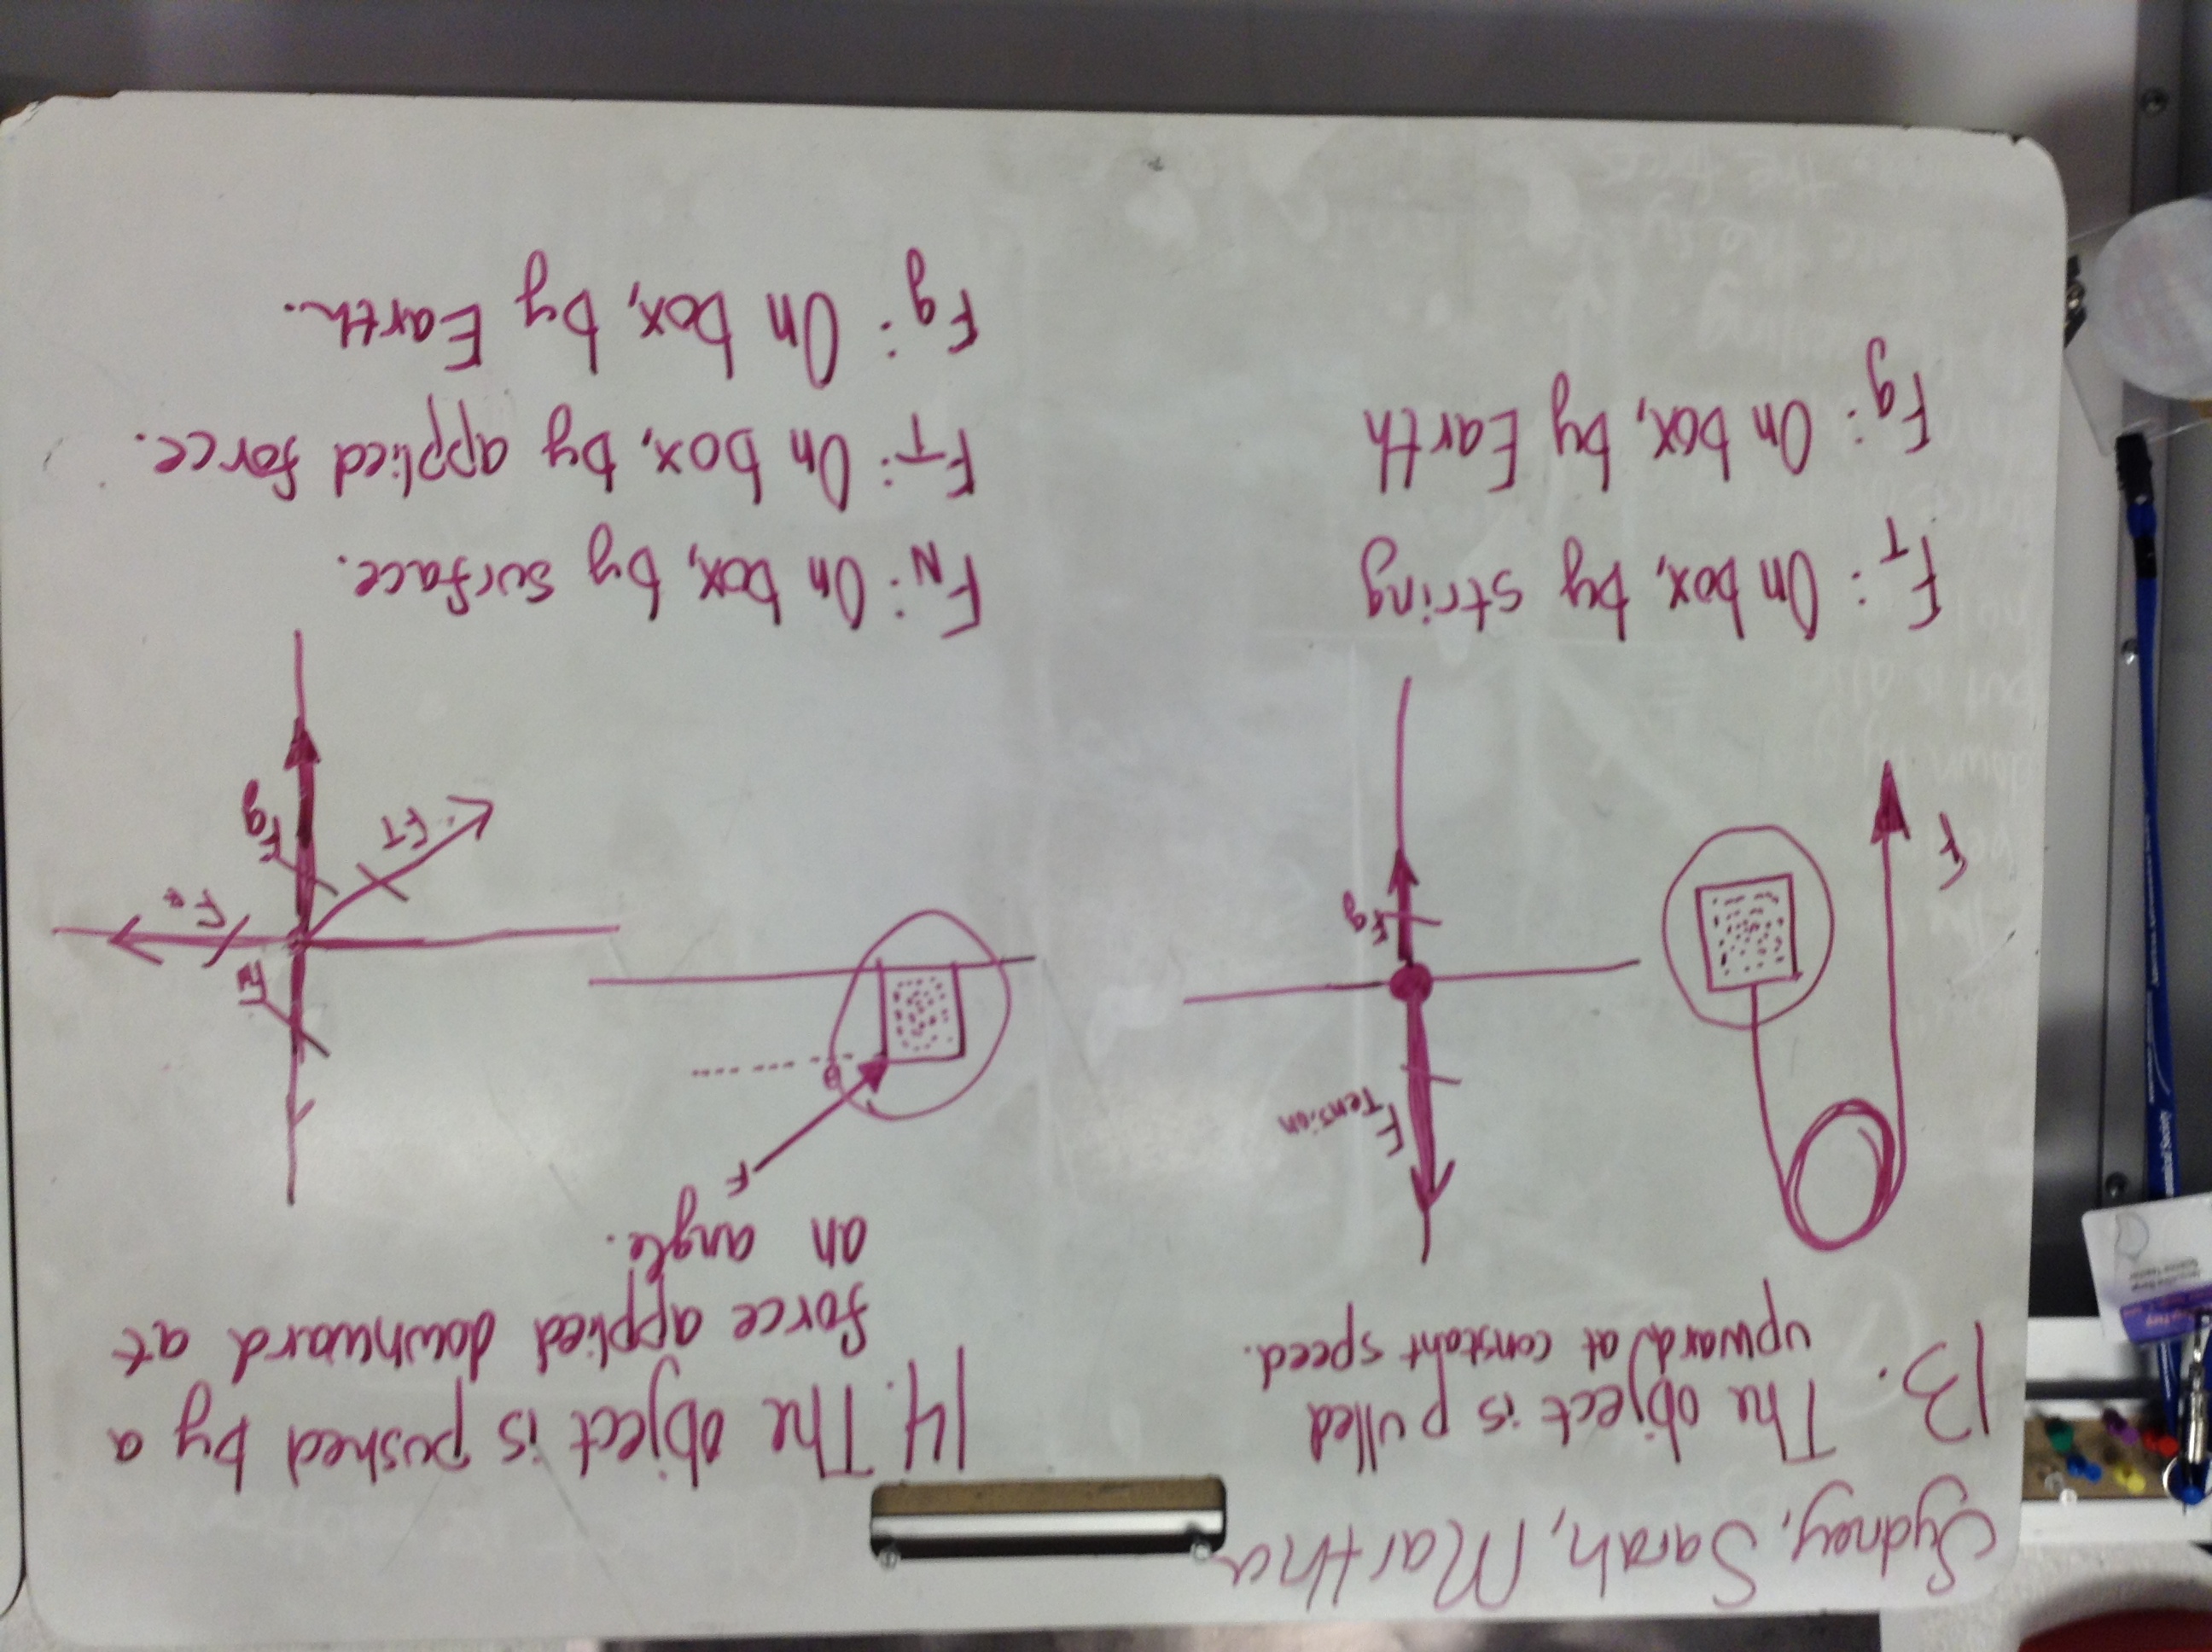 Sydney, Sarah, Martha
13. The object is pulled
upward at constant speed.
F
F Tension
Fg
F_T: On box, by string
Fg: On box, by Earth
14. The object is pushed by a
force applied downward at
an angle.
F
θ
F_N
Fg
F_T
F_N: On box, by surface.
F_T: On box, by applied force.
Fg: On box, by Earth.